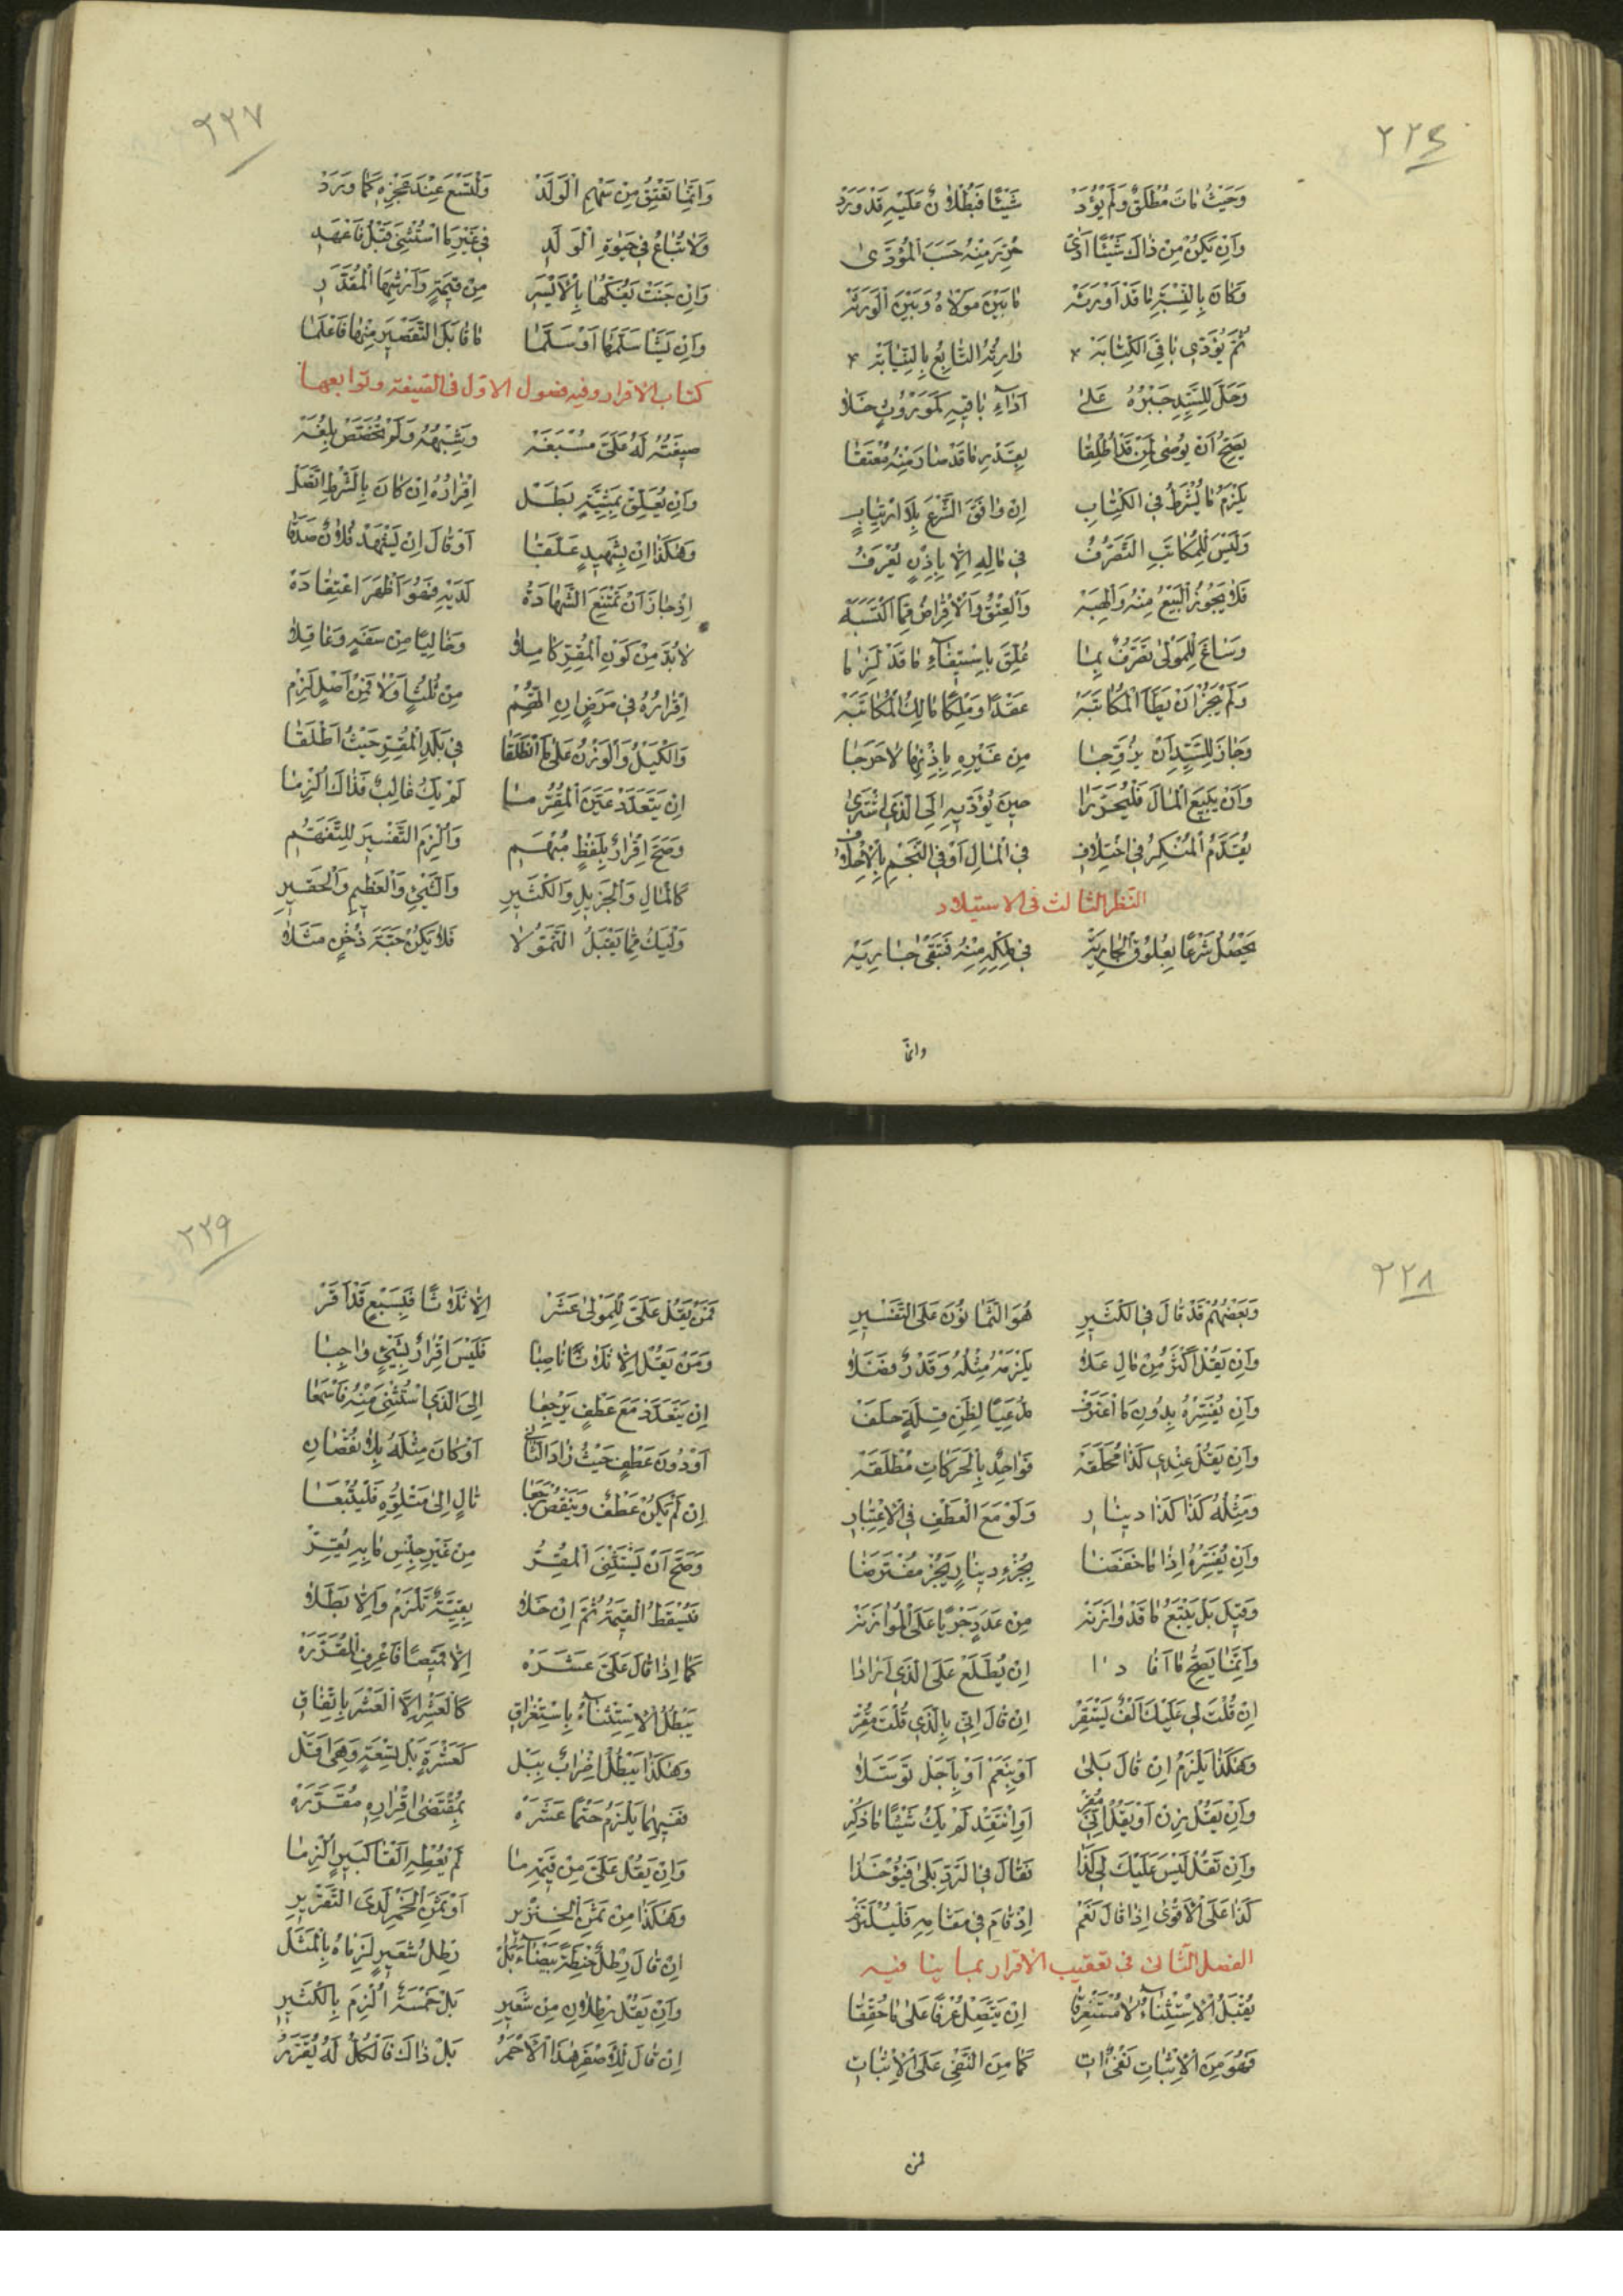 ٢٢٤
وَحَيْثُ مَاتَ مُطْلَقٌ وَلَمْ يُؤَدّ شَيْئًا فَبُطْلَانٌ عَلَيْهِ قَدْ وَرَدْ
وَاِنْ يَكُنْ مِنْ ذَاكَ شَيْئًا اَدّىٰ حُرِّرَ مِنْهُ حَسَبَ الْمُؤَدّىٰ
وَكَانَ بِالنِّسْبَةِ مَا قَدْ اَوْرَثَهْ مَا بَيْنَ مَوْلَاهُ وَبَيْنَ الْوَرَثَهْ
ثُمَّ يُؤَدّي بَاقِيَ الْكِتَابَهْ وَارِثُهُ التَّابِعُ بِالنِّيَابَهْ
وَجَلَّ لِلسَّيِّدِ جَبْرُهُ عَلىٰ اَدَاءِ بَاقِيهِ كَمَوْرُوثٍ خَلَا
يَصِحُّ اَنْ يُوصىٰ لِمَنْ قَدْ اُطْلِقَا بِقَدْرِ مَا قَدْ صَارَ مِنْهُ مُعْتَقَا
يَلْزَمُ مَا يُشْرَطُ فِي الْكِتَابِ اِنْ وَافَقَ الشَّرْعَ بِلَا ارْتِيَابٍ
وَلَيْسَ لِلْمُكَاتَبِ التَّصَرُّفُ فِي مَالِهِ اِلَّا بِاِذْنٍ يُعْرَفُ
فَلَا يَجُوزُ الْبَيْعُ مِنْهُ وَالْهِبَهْ وَالْعِتْقُ وَالْاِقْرَاضُ مِمَّا اكْتَسَبَهْ
وَسَاغَ لِلْمَوْلىٰ تَصَرُّفٌ بِمَا عُلِّقَ بِاسْتِيفَاءِ مَا قَدْ لَزِمَا
وَلَمْ يَجُزْ اَنْ يَطَأَ الْمُكَاتَبَهْ عَقْدًا وَمِلْكًا مَالِكُ الْمُكَاتَبَهْ
وَجَازَ لِلسَّيِّدِ اَنْ يُزَوِّجَا مِنْ غَيْرِهِ بِاِذْنِهَا لَا حَرَجَا
وَاَنْ يَبِيعَ الْمَالَ فَلْيُحَرَّرَا حِينَ يُؤَدّيهِ اِلَى الَّذِي اشْتَرىٰ
يُقَدَّمُ الْمُنْكِرُ فِي اخْتِلَافِ فِي الْمَالِ اَوْ فِي النَّجْمِ بِالْاِحْلَافِ
النظر الثالث في الاستيلاد
يَحْصُلُ شَرْعًا بِعُلُوقِ الْجَارِيَهْ فِي مِلْكِهِ مِنْهُ فَتَبْقىٰ جَارِيَهْ
وانما
٢٢٧
وَاِنَّمَا تَعْتِقُ مِنْ سَهْمِ الْوَلَدْ وَلْتَسْعَ عِنْدَ عَجْزِهِ كَمَا وَرَدْ
وَلَا تُبَاعُ فِي حَيٰوةِ الْوَلَدِ فِي غَيْرِ مَا اسْتُثْنِيَ قَبْلُ فَاعْهَدِ
وَاِنْ جَنَتْ يَفُكّهَا بِالْاَيْسَرِ مِنْ قِيمَةٍ وَاَرْشِهَا الْمُقَدَّرِ
وَاِنْ يَشَا سَلَّمَهَا اَوْ سَلَّمَا مَا قَابَلَ التَّقْصِيرَ مِنْهَا فَاعْلَمَا
كتاب الاقرار وفيه فصول الاوّل في الصّيغة وتوابعها
صِيغَتُهُ لَهُ عَلَيَّ مُسْبَغَهْ وَشِبْهُهُ وَلَوْ تَخَصَّصْ بِلُغَهْ
وَاِنْ يُعَلِّقْ بِمَشِيَّةٍ بَطَلْ اِقْرَارُهُ اِنْ كَانَ بِالشَّرْطِ اتَّصَلْ
وَهٰكَذَا اِنْ بِشَهِيدٍ عَلَّقَا اَوْ قَالَ اِنْ يَشْهَدْ فُلَانٌ صَدَقَا
اِذْ جَازَ اَنْ تَمْتَنِعَ الشَّهَادَهْ لَدَيْهِ فَهُوَ اَظْهَرَ اعْتِقَادَهْ
لَابُدَّ مِنْ كَوْنِ الْمُقِرِّ كَامِلَا وَخَالِيًا مِنْ سَفَهٍ وَعَاقِلَا
اِقْرَارُهُ فِي مَرَضٍ اِنِ اتُّهِمْ مِنْ ثُلُثٍ اَوْلَا فَمِنْ اَصْلٍ لَزِمْ
وَالْكَيْلُ وَالْوَزْنُ عَلىٰ مَا انْطَلَقَا فِي بَلَدِ الْمُقِرِّ حَيْثُ اَطْلَقَا
اِنْ يَتَعَدَّدْ عَيَّنَ الْمُقِرُّ مَا لَمْ يَكُ غَالِبٌ فَذَاكَ اُلْزِمَا
وَصَحَّ اِقْرَارٌ بِلَفْظٍ مُبْهَمِ وَاُلْزِمَ التَّفْسِيرَ لِلتَّفَهُّمِ
كَالْمَالِ وَالْجَزِيلِ وَالْكَثِيرِ وَالشَّيْءِ وَالْعَظِيمِ وَالْحَقِيرِ
وَلْيَكُ مِمَّا يَقْبَلُ التَّمَوُّلَا فَلَا يَكُنْ حَبَّةَ دُخْنٍ مَثَلَا
٢٢٨
وَبَعْضُهُمْ قَدْ قَالَ فِي الْكَثِيرِ هُوَ الثَّمَانُونَ عَلَى التَّفْسِيرِ
وَاِنْ يَقُلْ اَكْثَرُ مِنْ مَالِ عَلَا يَلْزَمْهُ مِثْلُهُ وَقَدْرٌ فَضَلَا
وَاِنْ يُفَسِّرْهُ بِدُونِ مَا اعْتَرَفْ مُدَّعِيًا لِظَنِّ قِلَّةٍ حَلَفْ
وَاِنْ يَقُلْ عِنْدِي كَذَا فَوَاحِدٌ بِالْحَرَكَاتِ مُطْلَقَهْ
وَمِثْلُهُ كَذَا كَذَا دِينَارِ وَلَوْ مَعَ الْعَطْفِ فِي الْاِعْتِبَارِ
وَاِنْ يُفَسِّرْهُ اِذَا مَا خَفَضَا بِجُزْءِ دِينَارٍ يَجُزْ مُفْتَرَضَا
وَقِيلَ بَلْ يَتْبَعُ مَا قَدْ وَازَنَهْ مِنْ عَدَدٍ جَرْيًا عَلَى الْمُوَازَنَهْ
وَاِنَّمَا يَصِحُّ مَا اَفَادَا اِنْ يُطَّلَعْ عَلَى الَّذِي اَرَادَا
اِنْ قُلْتَ لِي عَلَيْكَ اَلْفٌ يَسْتَقِرْ اِنْ قَالَ اِنّي بِالَّذِي قُلْتَ مُقِرّ
وَهٰكَذَا يَلْزَمُ اِنْ قَالَ بَلىٰ اَوْ بِنَعَمْ اَوْ بِاَجَلْ تَوَسَّلَا
وَاِنْ يَقُلْ زِنْ اَوْ يَقُلْ اِنّي مُقِرّ اَوِ انْتَقِدْ لَمْ يَكُ شَيْئًا مَا ذُكِرْ
وَاِنْ تَقُلْ لَيْسَ عَلَيْكَ لِي كَذَا فَقَالَ فِي الرَّدِّ بَلىٰ فَيُؤْخَذَا
كَذَا عَلَى الْاَقْوىٰ اِذَا قَالَ نَعَمْ اِذْ قَامَ فِي مَقَامِهِ فَلْيُلْتَزَمْ
الفصل الثّاني في تعقيب الاقرار بما ينافيه
يُقْبَلُ الْاِسْتِثْنَاءُ لَا مُسْتَغْرِقَا اِنْ يَتَّصِلْ عُرْفًا عَلىٰ مَا حُقِّقَا
فَهُوَ مِنَ الْاِثْبَاتِ نَفْيٌ اٰتِ كَمَا مِنَ النَّفْيِ عَلَى الْاِثْبَاتِ
فمن
٢٢٩
فَمَنْ يَقُلْ عَلَيَّ لِلْمَوْلىٰ عَشَرْ اِلَّا ثَلَاثًا فَبِسَبْعٍ قَدْ اَقَرّ
وَمَنْ يَقُلْ اِلَّا ثَلَاثًا نَاصِبَا فَلَيْسَ اِقْرَارٌ بِشَيْءٍ وَاجِبَا
اِنْ يَتَعَدَّدْ مَعَ عَطْفٍ يَرْجِعَا اِلَى الَّذِي اسْتُثْنِيَ مِنْهُ فَاسْمَعَا
اَوْ دُونَ عَطْفٍ حَيْثُ زَادَ الثَّانِي اَوْ كَانَ مِثْلَهُ بِلَا نُقْصَانِ
اِنْ لَمْ يَكُنْ عَطْفٌ وَيَنْقُصْ رَجَعَا تَالٍ اِلىٰ مَتْلُوِّهِ فَلْيُتْبَعَا
وَصَحَّ اَنْ يَسْتَثْنِيَ الْمُقِرُّ مِنْ غَيْرِ جِنْسِ مَا بِهِ يُقِرّ
فَتُسْقَطُ الْقِيمَةُ ثُمَّ اِنْ خَلَا بَقِيَّةٌ تَلْزَمْ وَاِلَّا بَطَلَا
كَمَا اِذَا قَالَ عَلَيَّ عَشَرَهْ اِلَّا قَمِيصًا فَاعْرِفِ الْمُقَرَّرَهْ
يَبْطُلُ الْاِسْتِثْنَاءُ بِاسْتِغْرَاقِ كَالْعَشْرِ اِلَّا الْعَشْرَ بِاتِّفَاقِ
وَهٰكَذَا يَبْطُلُ اِضْرَابٌ بِبَلْ كَعَشْرَةٍ بَلْ تِسْعَةٍ وَهِيَ اَقَلّ
فَفِيهِمَا يَلْزَمُ حَتْمًا عَشَرَهْ بِمُقْتَضىٰ اِقْرَارِهِ مُقَرَّرَهْ
وَاِنْ يَقُلْ عَلَيَّ مِنْ قِيمَةِ مَا لَمْ يُعْطِهِ اَلْفًا كَبَيْعٍ اُلْزِمَا
وَهٰكَذَا مِنْ ثَمَنِ الْخِنْزِيرِ اَوْ ثَمَنِ الْخَمْرِ لَدَى التَّقْرِيرِ
اِنْ قَالَ رِطْلٌ حِنْطَةً بَيْضَاءَ بَلْ رِطْلُ شَعِيرٍ لَزِمَاهُ بِالْمَثَلْ
وَاِنْ يَقُلْ رِطْلَانِ مِنْ شَعِيرِ بَلْ خَمْسَةٌ اُلْزِمَ بِالْكَثِيرِ
اِنْ قَالَ هٰذَا الْاَحْمَرُ بَلْ ذَاكَ فَالْكُلُّ لَهُ يُقَرَّرُ